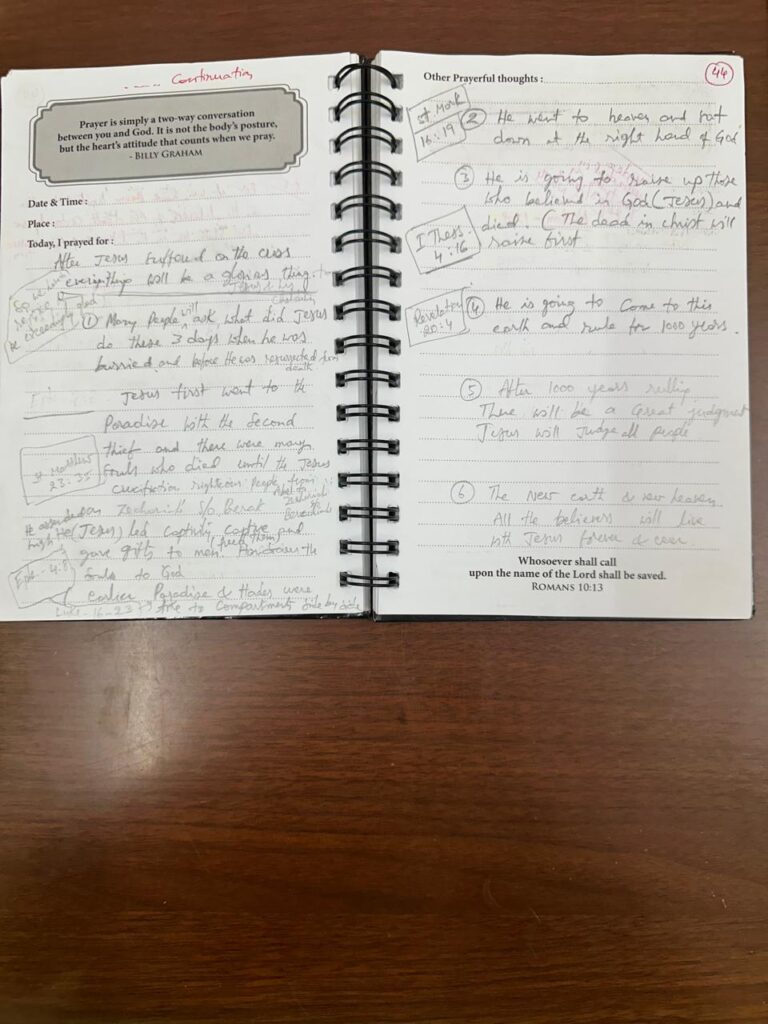 ..... Continuation
Prayer is simply a two-way conversation
between you and God. It is not the body's posture,
but the heart's attitude that counts when we pray.
- BILLY GRAHAM
Date & Time :
Place :
Today, I prayed for :
After Jesus suffered on the cross
everything will be a glorious thing
So we have
rejoice &
be exceedingly glad
① Many People will ask what did Jesus
do these 3 days when he was
burried and before He was resurrected from
death
Jesus first went to the
Paradise with the Second
thief and there were many
Souls who died until the Jesus
crucifiction righteous people from
Abel to
Zechariah
St Matthew
23:35
Zechariah S/o Berak
He ascended on
high He (Jesus) led Captivity captive and
(freed them)
gave gifts to men.
Eph - 4:8
Souls to God
Earlier Paradise & Hades were
Luke - 16 - 23 to Compartments side by side
Other Prayerful thoughts :
44
St Mark
16:19
② He went to heaven and sat
down at the right hand of God
③ He is going to raise up those
who believed in God (Jesus) and
died. (The dead in christ will
raise first
I Thess.
4:16
Revelation
20:4
④ He is going to Come to this
earth and rule for 1000 years.
⑤ After 1000 years rulling
There will be a Great judgment
Jesus will Judge all people
⑥ The New earth & new heaven
All the believers will live
with Jesus forever & ever.
Whosoever shall call
upon the name of the Lord shall be saved.
ROMANS 10:13